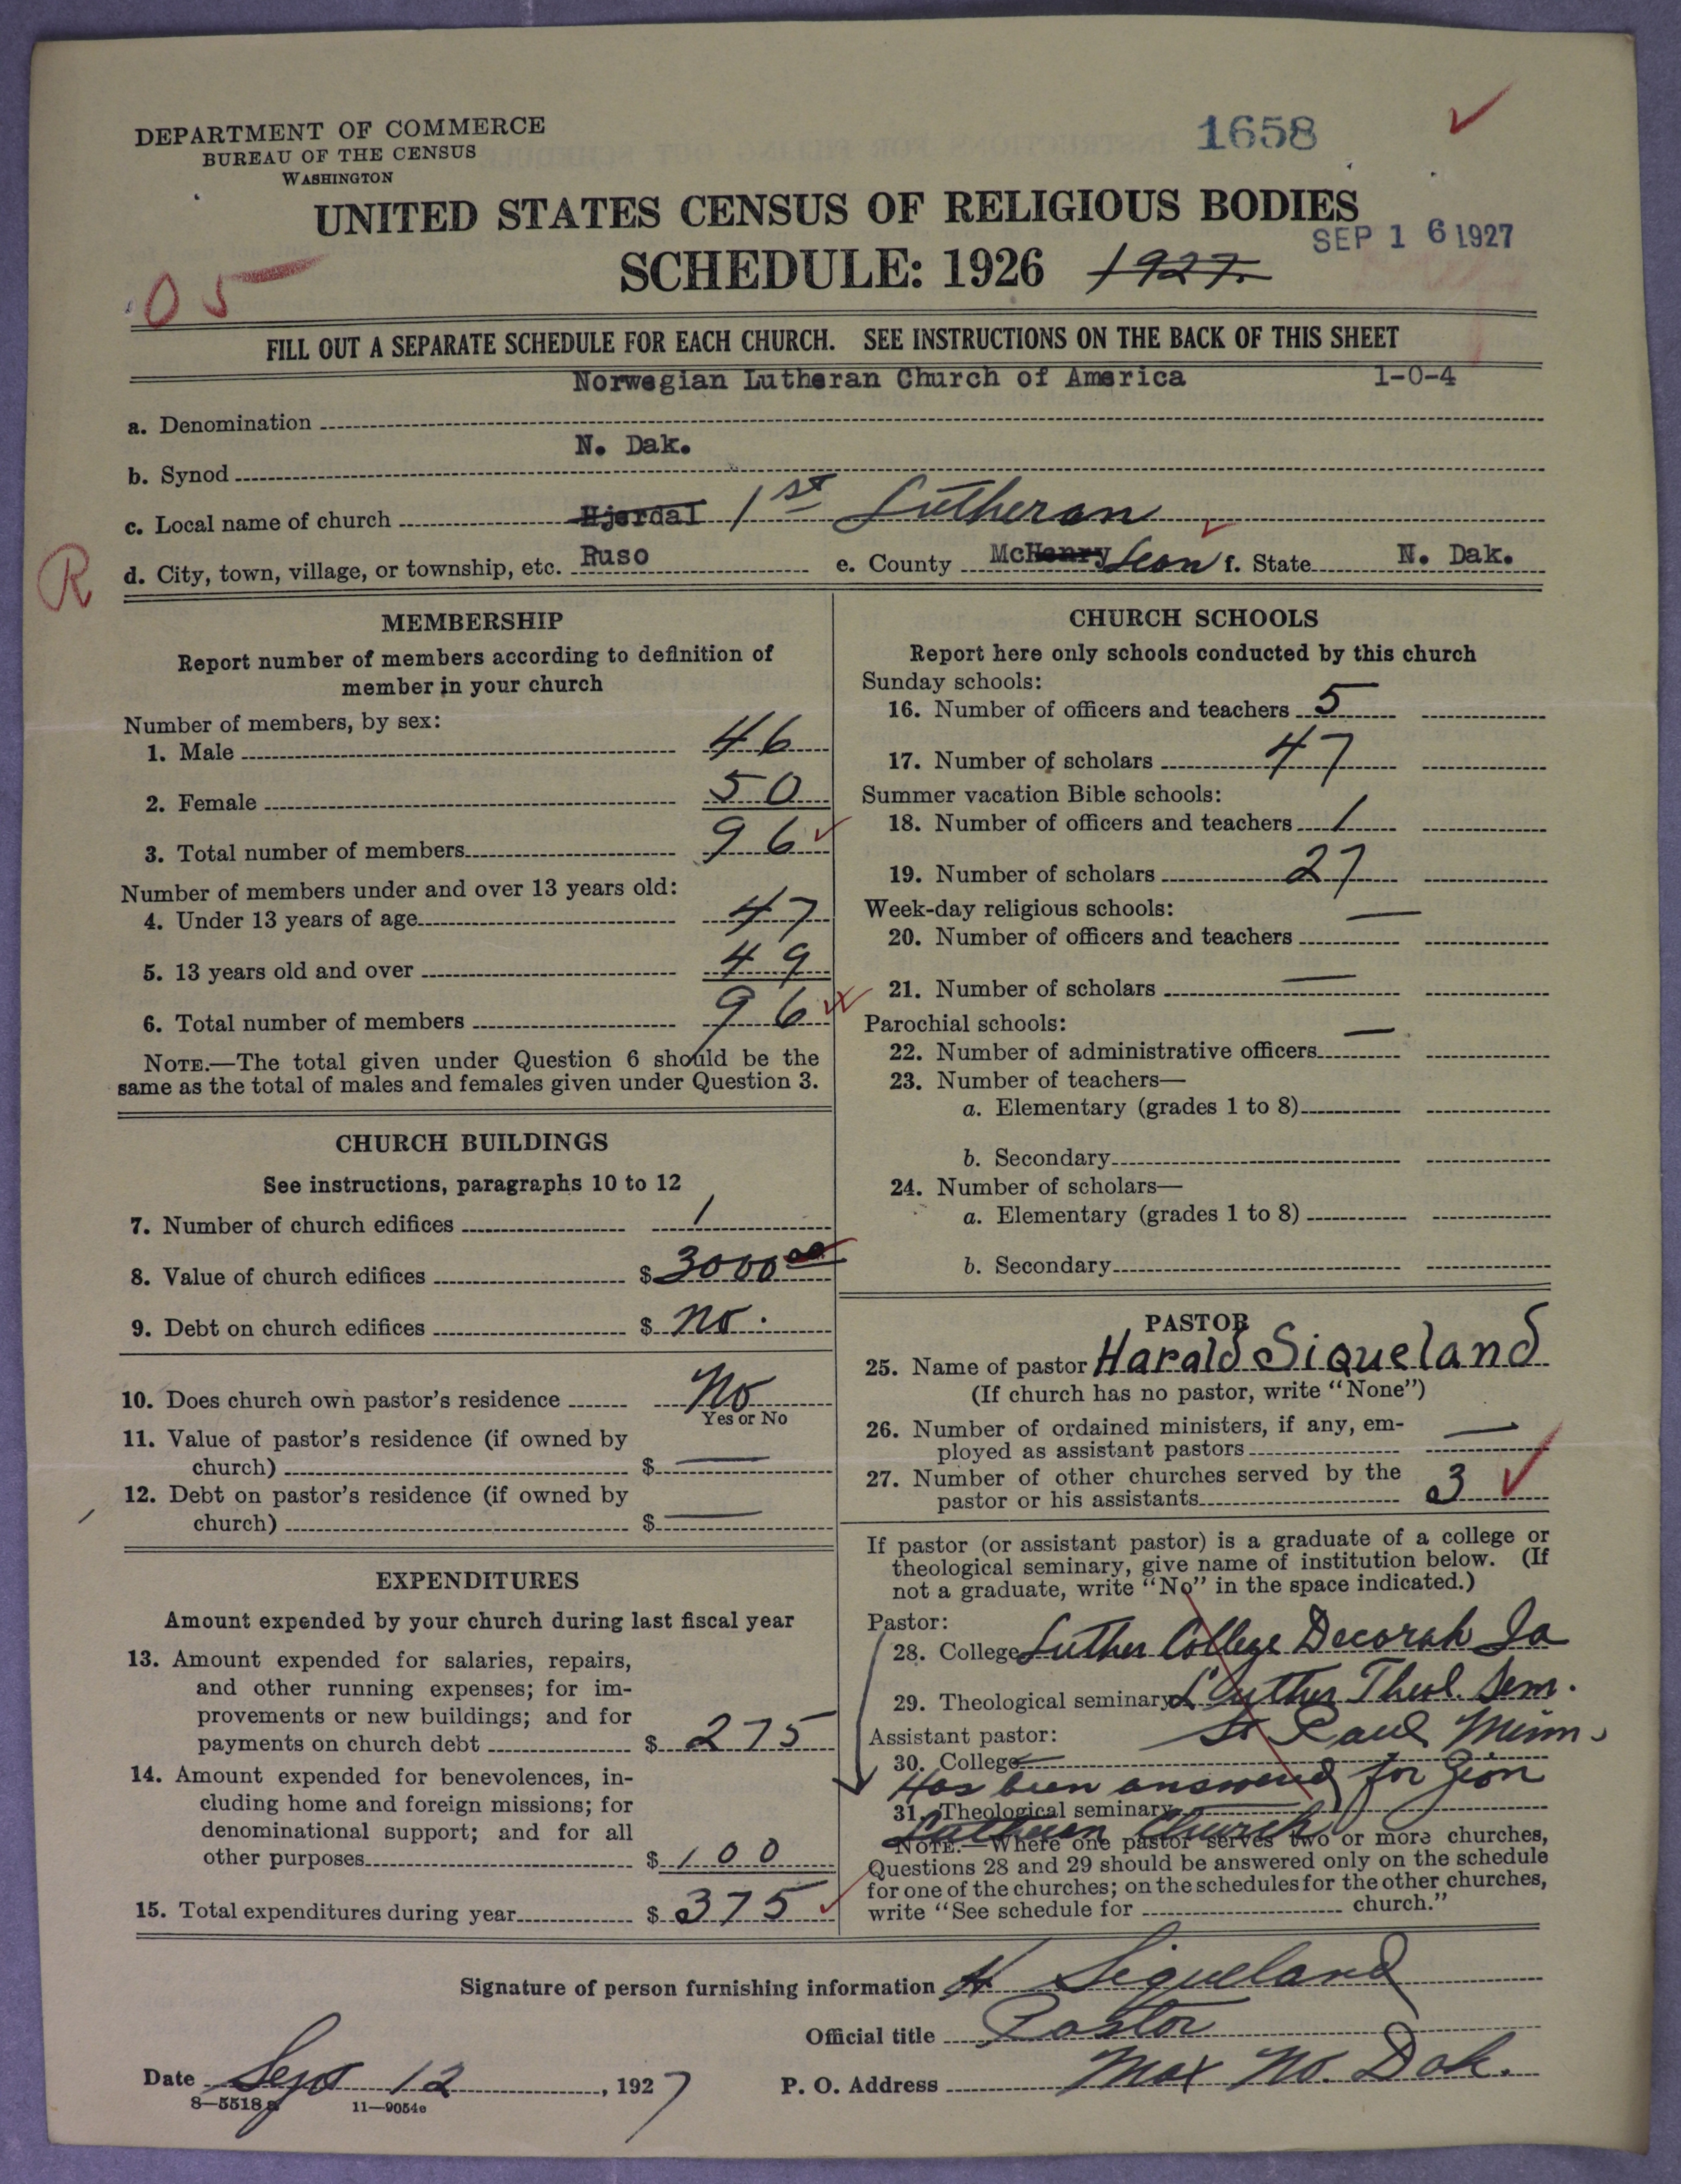 DEPARTMENT OF COMMERCE
BUREAU OF THE CENSUS
WASHINGTON
1658
UNITED STATES CENSUS OF RELIGIOUS BODIES
SEP 16 1927
SCHEDULE: 1926 1927.
05
FILL OUT A SEPARATE SCHEDULE FOR EACH CHURCH. SEE INSTRUCTIONS ON THE BACK OF THIS SHEET
Norwegian Lutheran Church of America 1-0-4
a. Denomination
N. Dak.
b. Synod
c. Local name of church Hjerdal 1st Lutheran
R
d. City, town, village, or township, etc. Ruso e. County McHenry Lean f. State N. Dak.
MEMBERSHIP
Report number of members according to definition of
member in your church
Number of members, by sex:
1. Male 46
2. Female 50
3. Total number of members 96
Number of members under and over 13 years old:
4. Under 13 years of age 47
5. 13 years old and over 49
6. Total number of members 96
NOTE.—The total given under Question 6 should be the
same as the total of males and females given under Question 3.
CHURCH BUILDINGS
See instructions, paragraphs 10 to 12
7. Number of church edifices 1
8. Value of church edifices $ 3000 00
9. Debt on church edifices $ no.
10. Does church own pastor's residence No
Yes or No
11. Value of pastor's residence (if owned by
church) $ —
12. Debt on pastor's residence (if owned by
church) $ —
EXPENDITURES
Amount expended by your church during last fiscal year
13. Amount expended for salaries, repairs,
and other running expenses; for im-
provements or new buildings; and for
payments on church debt $ 275
14. Amount expended for benevolences, in-
cluding home and foreign missions; for
denominational support; and for all
other purposes $ 100
15. Total expenditures during year $ 375
CHURCH SCHOOLS
Report here only schools conducted by this church
Sunday schools:
16. Number of officers and teachers 5
17. Number of scholars 47
Summer vacation Bible schools:
18. Number of officers and teachers 1
19. Number of scholars 27
Week-day religious schools:
20. Number of officers and teachers —
21. Number of scholars —
Parochial schools:
22. Number of administrative officers —
23. Number of teachers—
a. Elementary (grades 1 to 8)
b. Secondary
24. Number of scholars—
a. Elementary (grades 1 to 8)
b. Secondary
PASTOR
25. Name of pastor Harald Siqueland
(If church has no pastor, write "None")
26. Number of ordained ministers, if any, em-
ployed as assistant pastors —
27. Number of other churches served by the
pastor or his assistants 3
If pastor (or assistant pastor) is a graduate of a college or
theological seminary, give name of institution below. (If
not a graduate, write "No" in the space indicated.)
Pastor:
28. College Luther College Decorah Ia
29. Theological seminary Luther Theol. Sem.
Assistant pastor: St Paul Minn.
30. College
Has been answered for Zion
31. Theological seminary
Lutheran Church
NOTE.—Where one pastor serves two or more churches,
Questions 28 and 29 should be answered only on the schedule
for one of the churches; on the schedules for the other churches,
write "See schedule for church."
Signature of person furnishing information H Siqueland
Official title Pastor
Date Sept 12, 1927 P. O. Address Max No. Dak.
8—5518a 11—9054e